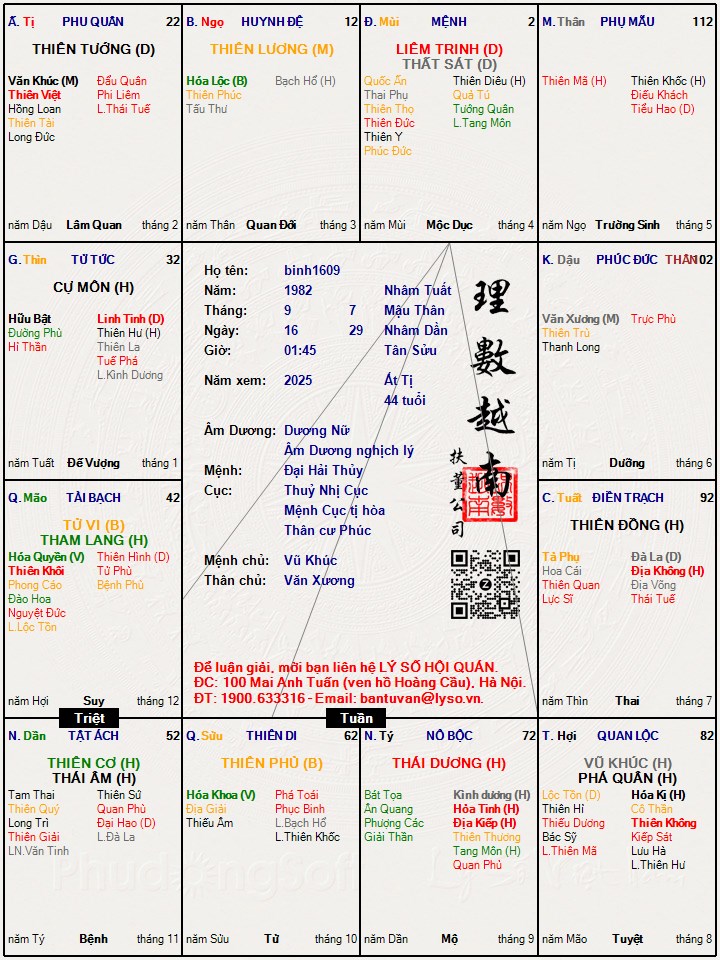 Ấ. Tị PHU QUÂN 22
THIÊN TƯỚNG (D)
Văn Khúc (M) Đẩu Quân
Thiên Việt Phi Liêm
Hồng Loan L.Thái Tuế
Thiên Tài
Long Đức
năm Dậu Lâm Quan tháng 2
B. Ngọ HUYNH ĐỆ 12
THIÊN LƯƠNG (M)
Hóa Lộc (B) Bạch Hổ (H)
Thiên Phúc
Tấu Thư
năm Thân Quan Đới tháng 3
Đ. Mùi MỆNH 2
LIÊM TRINH (D)
THẤT SÁT (D)
Quốc Ấn Thiên Diêu (H)
Thai Phụ Quả Tú
Thiên Thọ Tướng Quân
Thiên Đức L.Tang Môn
Thiên Y
Phúc Đức
năm Mùi Mộc Dục tháng 4
M. Thân PHỤ MẪU 112
Thiên Mã (H) Thiên Khốc (H)
Điếu Khách
Tiểu Hao (D)
năm Ngọ Trường Sinh tháng 5
G. Thìn TỬ TỨC 32
CỰ MÔN (H)
Hữu Bật Linh Tinh (D)
Đường Phù Thiên Hư (H)
Hỉ Thần Thiên La
Tuế Phá
L.Kình Dương
năm Tuất Đế Vượng tháng 1
Họ tên: binh1609
Năm: 1982 Nhâm Tuất
Tháng: 9 7 Mậu Thân
Ngày: 16 29 Nhâm Dần
Giờ: 01:45 Tân Sửu
Năm xem: 2025 Ất Tị
44 tuổi
Âm Dương: Dương Nữ
Âm Dương nghịch lý
Mệnh: Đại Hải Thủy
Cục: Thuỷ Nhị Cục
Mệnh Cục tị hòa
Thân cư Phúc
Mệnh chủ: Vũ Khúc
Thân chủ: Văn Xương
理數越南
扶董公司
Để luận giải, mời bạn liên hệ LÝ SỐ HỘI QUÁN.
ĐC: 100 Mai Anh Tuấn (ven hồ Hoàng Cầu), Hà Nội.
ĐT: 1900.633316 - Email: bantuvan@lyso.vn.
K. Dậu PHÚC ĐỨC THÂN 102
Văn Xương (M) Trực Phù
Thiên Trù
Thanh Long
năm Tị Dưỡng tháng 6
Q. Mão TÀI BẠCH 42
TỬ VI (B)
THAM LANG (H)
Hóa Quyền (V) Thiên Hình (D)
Thiên Khôi Tử Phù
Phong Cáo Bệnh Phù
Đào Hoa
Nguyệt Đức
L.Lộc Tồn
năm Hợi Suy tháng 12
C. Tuất ĐIỀN TRẠCH 92
THIÊN ĐỒNG (H)
Tả Phụ Đà La (D)
Hoa Cái Địa Không (H)
Thiên Quan Địa Võng
Lực Sĩ Thái Tuế
năm Thìn Thai tháng 7
Triệt
Tuần
N. Dần TẬT ÁCH 52
THIÊN CƠ (H)
THÁI ÂM (H)
Tam Thai Thiên Sứ
Thiên Quý Quan Phù
Long Trì Đại Hao (D)
Thiên Giải L.Đà La
LN.Văn Tinh
năm Tý Bệnh tháng 11
Q. Sửu THIÊN DI 62
THIÊN PHỦ (B)
Hóa Khoa (V) Phá Toái
Địa Giải Phục Binh
Thiếu Âm L.Bạch Hổ
L.Thiên Khốc
năm Sửu Tử tháng 10
N. Tý NÔ BỘC 72
THÁI DƯƠNG (H)
Bát Tọa Kình dương (H)
Ân Quang Hỏa Tinh (H)
Phượng Các Địa Kiếp (H)
Giải Thần Thiên Thương
Tang Môn (H)
Quan Phủ
năm Dần Mộ tháng 9
T. Hợi QUAN LỘC 82
VŨ KHÚC (H)
PHÁ QUÂN (H)
Lộc Tồn (D) Hóa Kị (H)
Thiên Hỉ Cô Thần
Thiếu Dương Thiên Không
Bác Sỹ Kiếp Sát
L.Thiên Mã Lưu Hà
L.Thiên Hư
năm Mão Tuyệt tháng 8